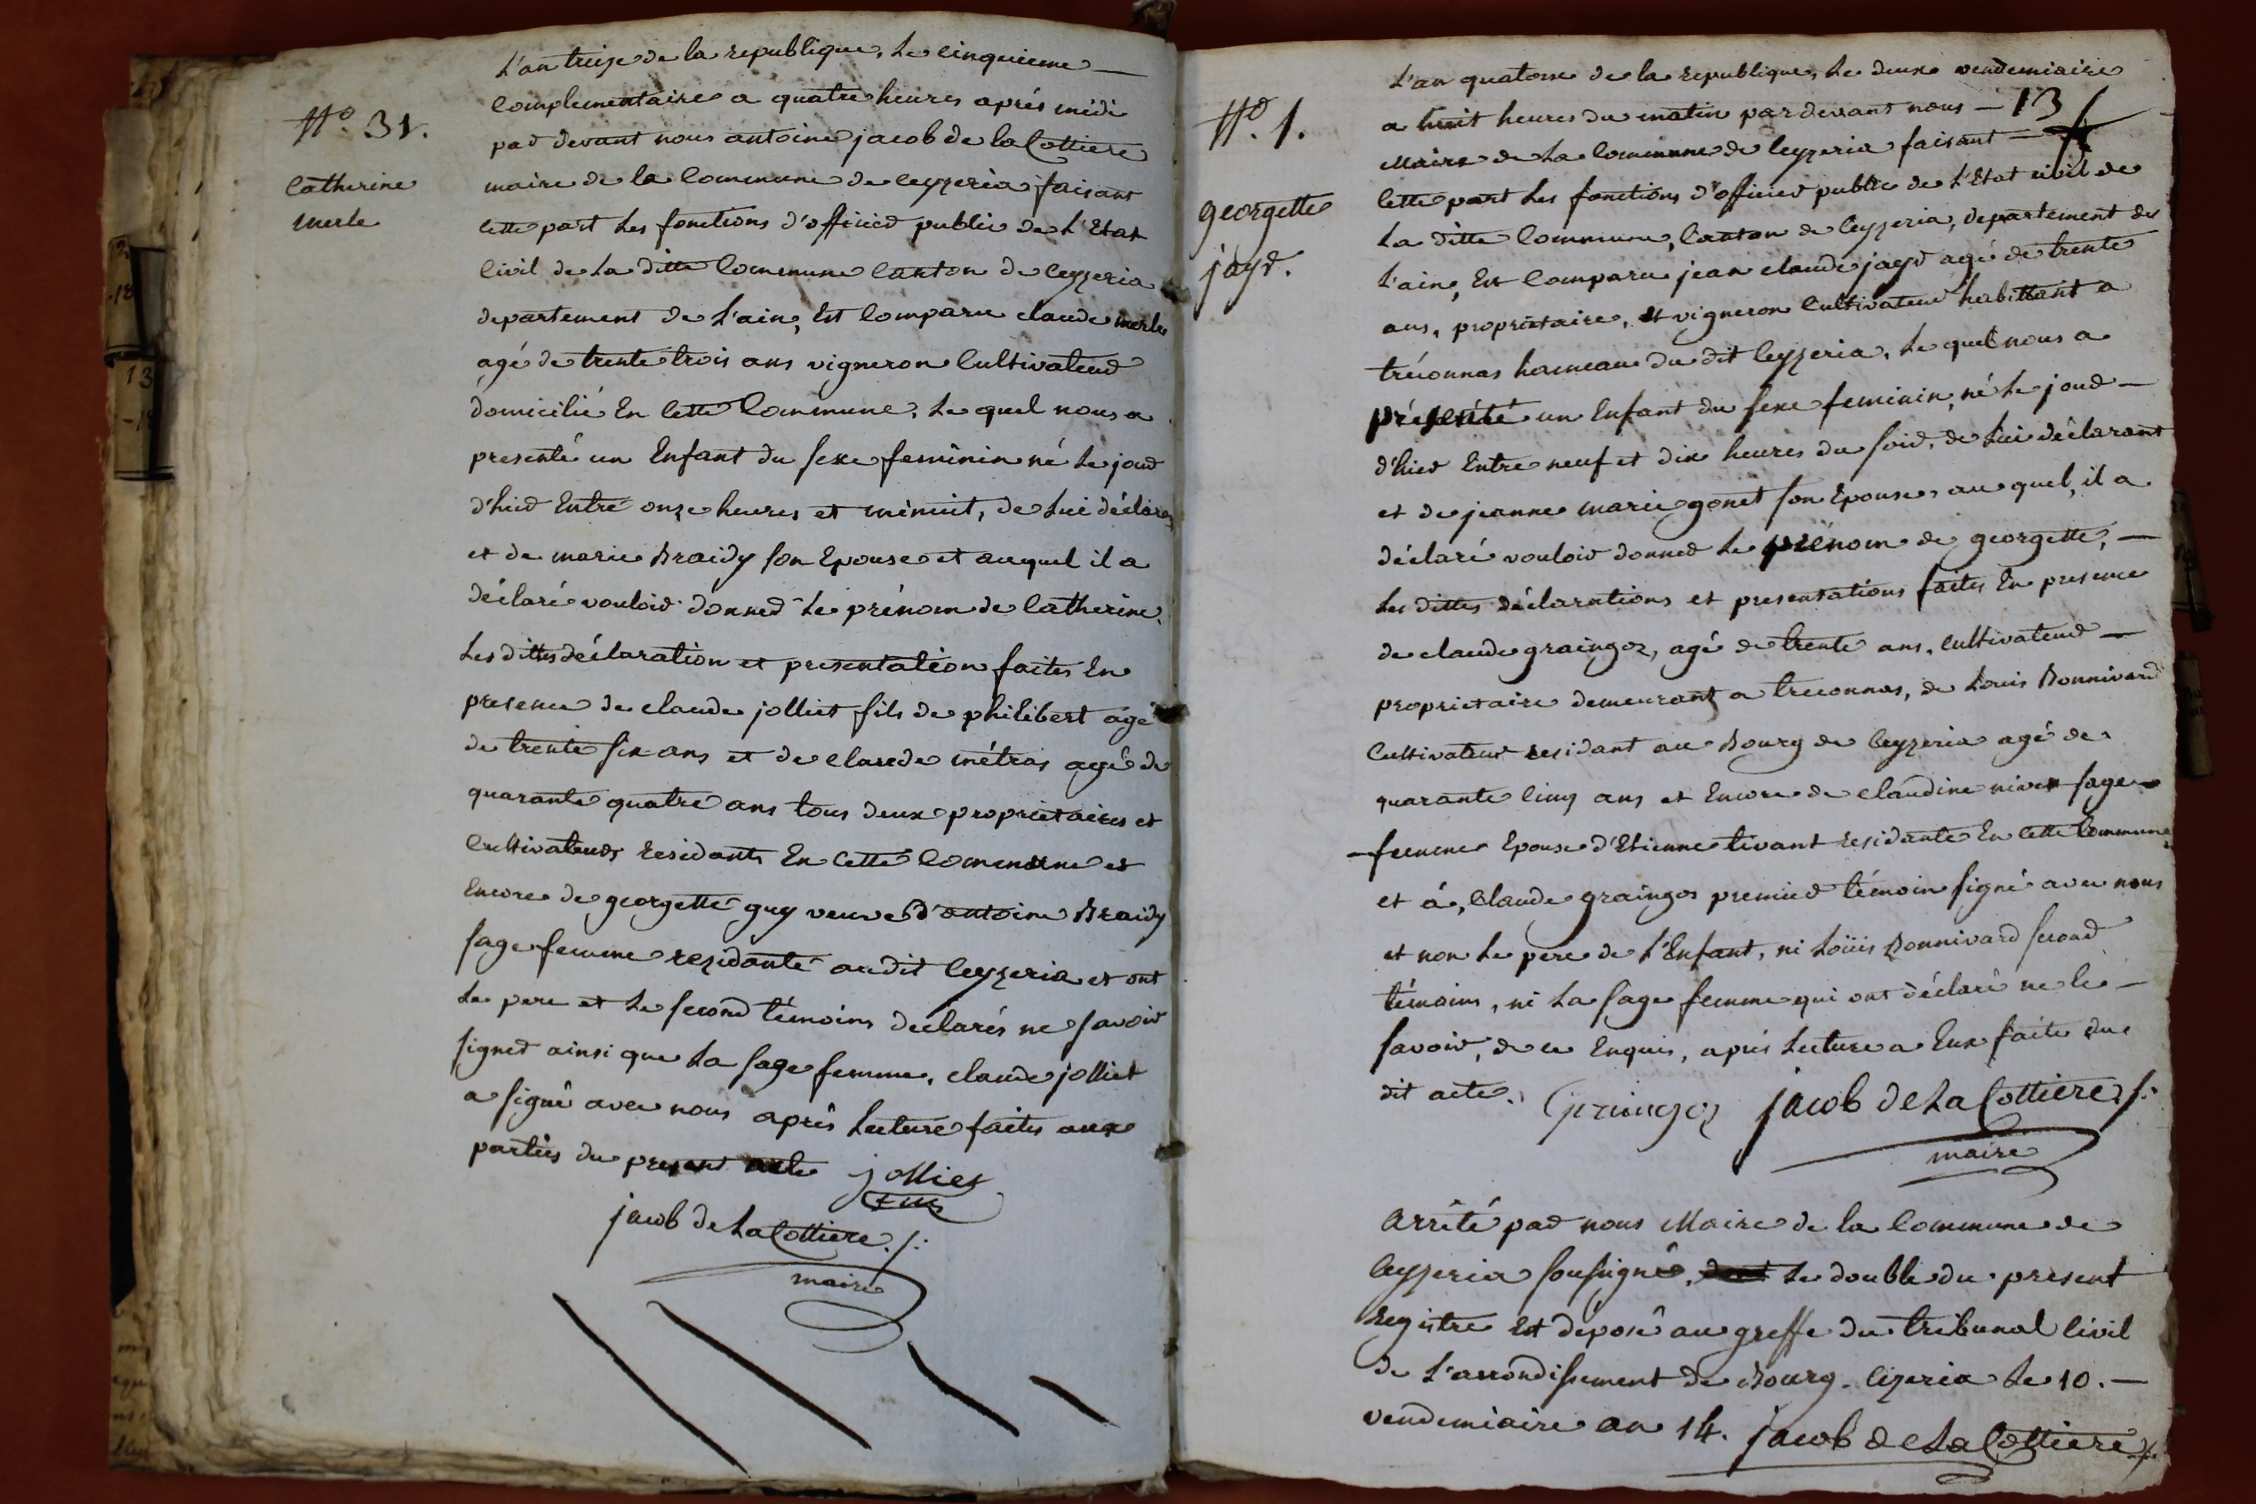 N.o 31.
Catherine
merle
L'an treize de la republique, Le cinquieme
Complementaire a quatre heures aprés midi
par devant nous antoine jacob de la Cottiere
maire de la Commune de ceyzeria faisant
cette part les fonctions d'officier public de L'Etat
Civil de La ditte Commune Canton de Ceyzeria
departement de L'ain, Est Comparu claude merle
agé de trente trois ans vigneron Cultivateur
domicilié En Cette Commune, Le quel nous a
presenté un Enfant du sexe feminin né Le jour
d'hier Entre onze heures et minuit, de Lui déclarant
et de marie Braidy son Epouse et auquel il a
déclaré vouloir donner Le prénom de Catherine,
Les dittes déclaration et presentation faites En
presence de claude jolliet fils de philibert agé
de trente six ans et de claude métras agé de
quarante quatre ans tous deux proprietaires et
Cultivateurs residants En Cette Commune et
Encore de georgette guy veuve d'antoine Braidy
sage femme residante audit Ceyzeria et ont
Le pere et Le second témoins declarés ne savoir
signer ainsi que La sage femme, claude jolliet
a signé avec nous aprés Lecture faites aux
parties du present acte jolliet
jacob de La Cottiere
maire
N.o 1.
georgette
jayr.
13
L'an quatorze de la republique, Le deux vendemiaire
a huit heures du matin par devant nous
Maire de La Commune de Ceyzeria faisant
Cette part Les fonctions d'officier public de L'Etat civil de
La ditte Commune, Canton de Ceyzeria, departement de
L'ain, Est Comparu jean claude jayr agé de trente
ans, proprietaire, et vigneron Cultivateur habittant a
tréconnas hameau du dit Ceyzeria, Le quel nous a
présenté un Enfant du sexe feminin, né Le jour
d'hier Entre neuf et dix heures du soir, de Lui déclarant
et de jeanne marie gonet son Epouse, au quel, il a
déclaré vouloir donner Le prénom de georgette,
Les dittes déclarations et presentations faites En presence
de claude graingoz, agé de trente ans, cultivateur
proprietaire demeurant a treconnas, de Louis Bonnivard
Cultivateur residant au Bourg de Ceyzeria agé de
quarante Cinq ans et Encore de claudine sage
femme Epouse d'Etienne tivant residante En Cette Commune
et á, Claude graingos premier témoin signé avec nous
et non Le pere de L'Enfant, ni Loüis Bonnivard second
témoins, ni La sage femme qui ont déclaré ne Le
savoir, de ce Enquis, aprés Lecture a Eux faite du
dit acte. Graingoz jacob de La Cottiere
maire
Arrêté par nous Maire de la Commune de
Ceyzeria soussigné, Le double du present
Registre Est deposé au greffe du tribunal Civil
de L'arrondissement de Bourg. Cizeria Le 10.
vendemiaire an 14. jacob de La Cottiere